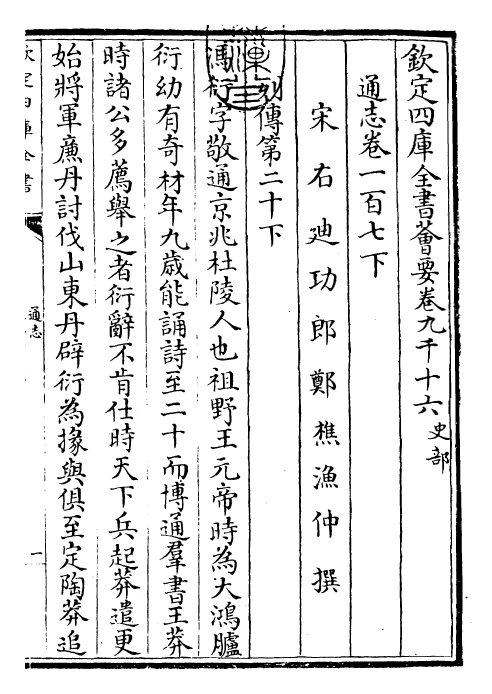 欽定四庫全書薈要卷九千十六 史部
通志卷一百七下
宋右廸功郎鄭樵漁仲撰
列傳第二十下
馮衍字敬通京兆杜陵人也祖野王元帝時為大鴻臚
衍幼有奇材年九歲能誦詩至二十而博通羣書王莽
時諸公多薦舉之者衍辭不肯仕時天下兵起莽遣更
始將軍廉丹討伐山東丹辟衍為掾與俱至定陶莽追
欽定四庫全書
通志
一